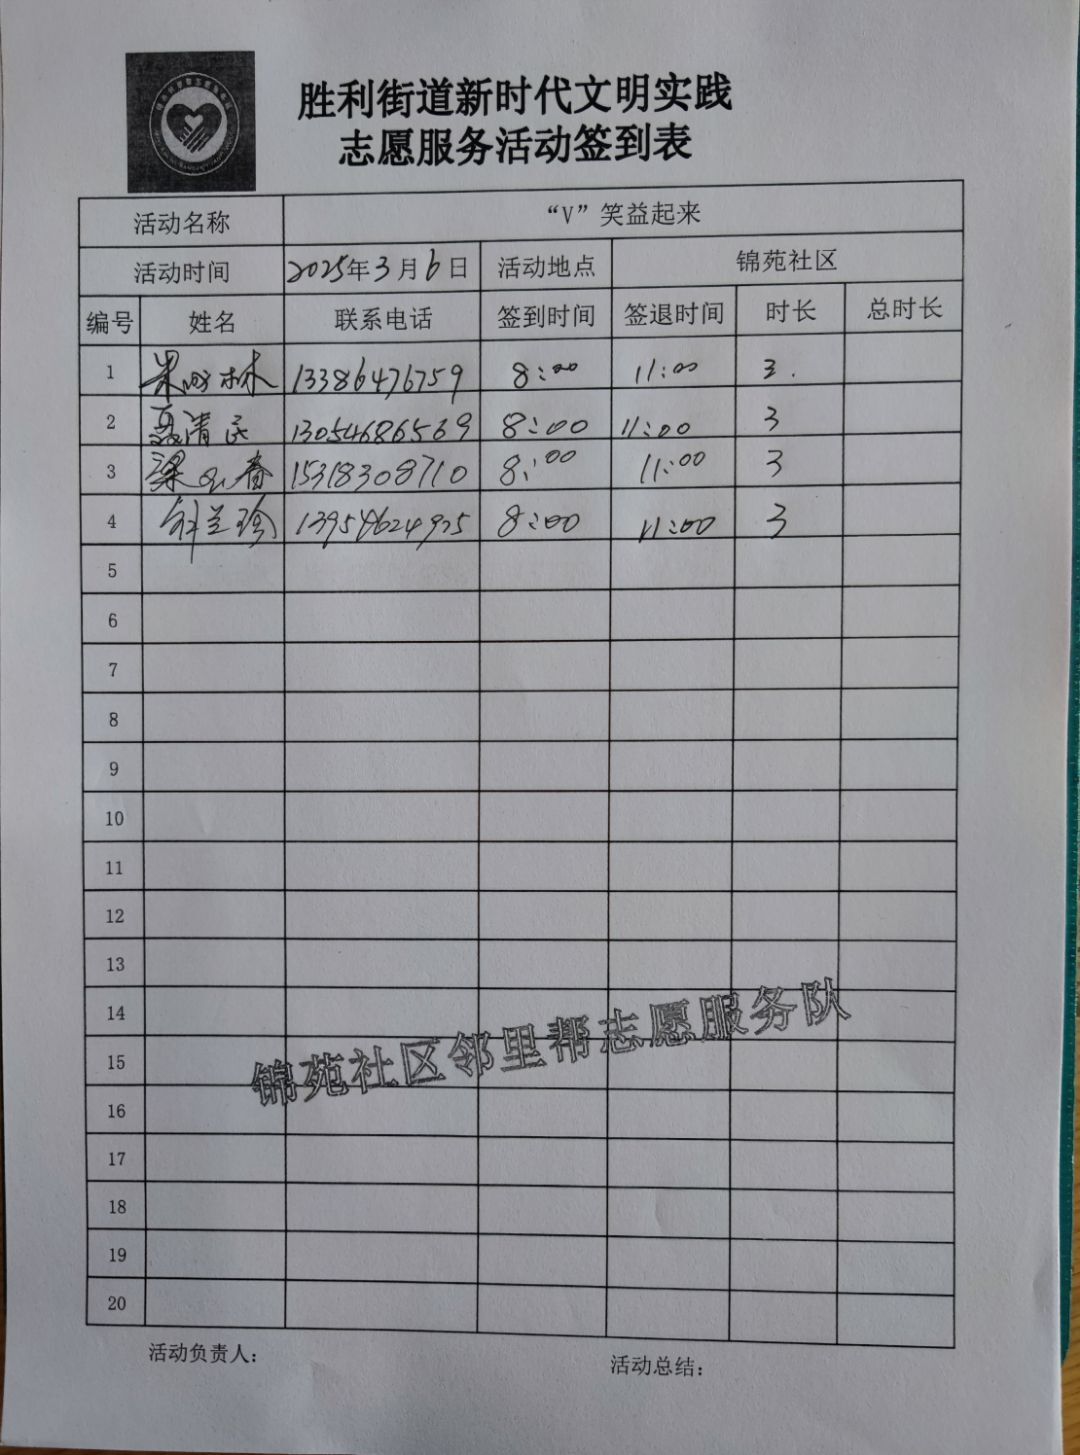 胜利街道新时代文明实践
志愿服务活动签到表
活动名称 “V”笑益起来
活动时间 2025年3月6日 活动地点 锦苑社区
编号 姓名 联系电话 签到时间 签退时间 时长 总时长
1 林 13386476759 8:00 11:00 3.
2 聂清民 13054686569 8:00 11:00 3
3 梁 春 15318308710 8:00 11:00 3
4 兰珍 8:00 11:00 3
5
6
7
8
9
10
11
12
13
14
15
16
17
18
19
20
锦苑社区邻里帮志愿服务队
活动负责人： 活动总结：